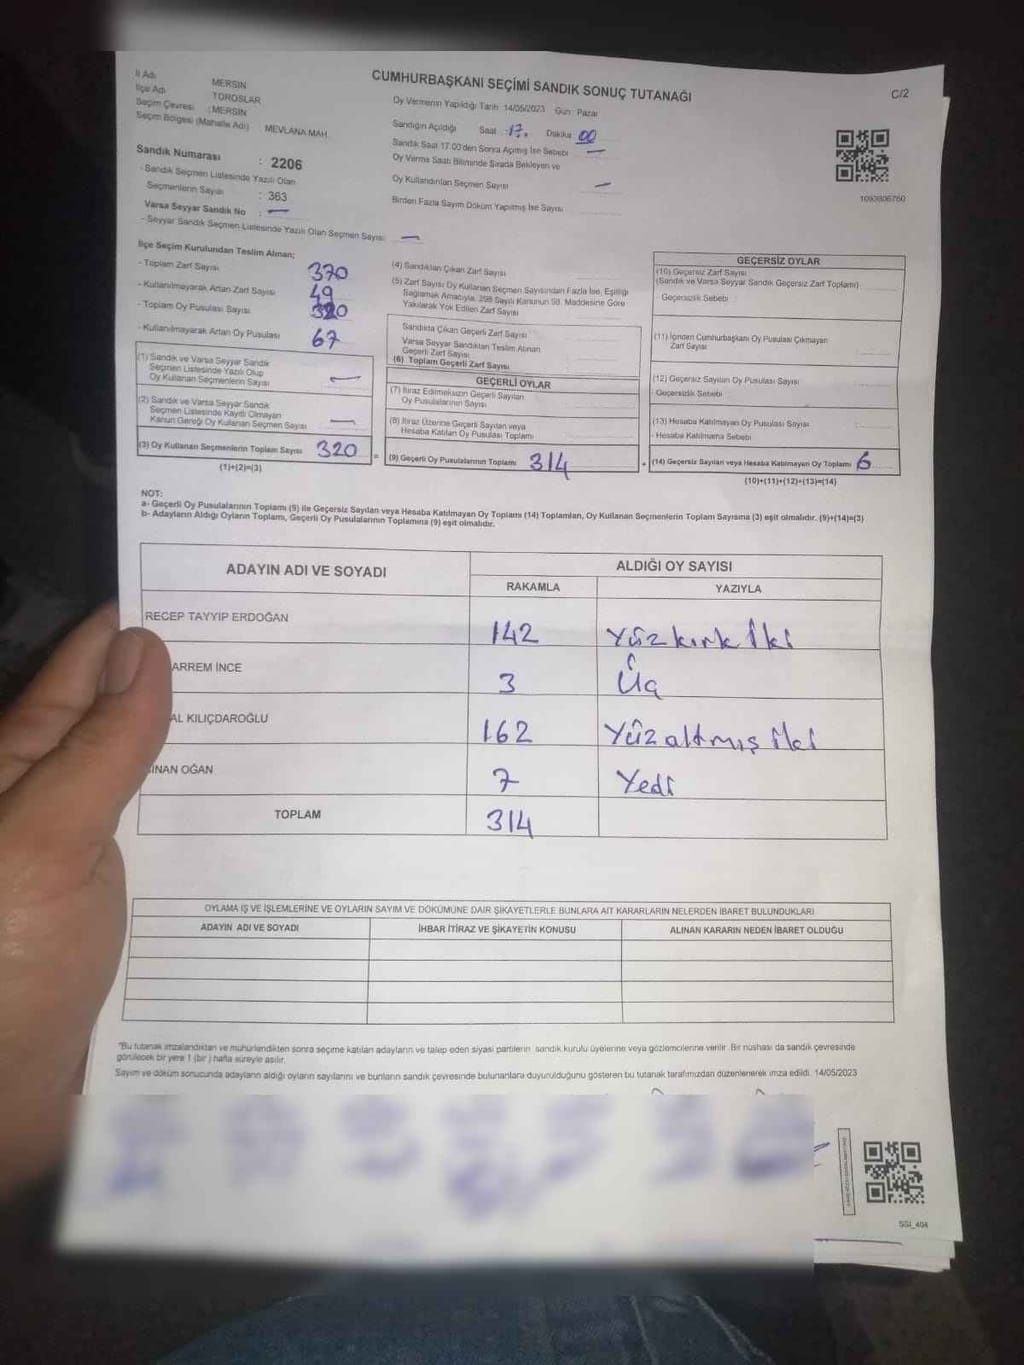 CUMHURBAŞKANI SEÇİMİ SANDIK SONUÇ TUTANAĞI
C/2
İl Adı MERSİN
İlçe Adı TOROSLAR
Seçim Çevresi : MERSİN
Seçim Bölgesi (Mahalle Adı) MEVLANA MAH.
Oy Vermenin Yapıldığı Tarih 14/05/2023 Gün : Pazar
Sandığın Açıldığı Saat : 17. Dakika 00
Sandık Saat 17.00'den Sonra Açılmış İse Sebebi —
Oy Verme Saati Bitiminde Sırada Bekleyen ve
Oy Kullandırılan Seçmen Sayısı —
Birden Fazla Sayım Döküm Yapılmış İse Sayısı
Sandık Numarası : 2206
- Sandık Seçmen Listesinde Yazılı Olan
Seçmenlerin Sayısı : 363
Varsa Seyyar Sandık No : —
- Seyyar Sandık Seçmen Listesinde Yazılı Olan Seçmen Sayısı —
1093806760
İlçe Seçim Kurulundan Teslim Alınan;
- Toplam Zarf Sayısı 370
- Kullanılmayarak Artan Zarf Sayısı 49
- Toplam Oy Pusulası Sayısı
- Kullanılmayarak Artan Oy Pusulası 67
(1) Sandık ve Varsa Seyyar Sandık
Seçmen Listesinde Yazılı Olup
Oy Kullanan Seçmenlerin Sayısı —
(2) Sandık ve Varsa Seyyar Sandık
Seçmen Listesinde Kayıtlı Olmayan
Kanun Gereği Oy Kullanan Seçmen Sayısı —
(3) Oy Kullanan Seçmenlerin Toplam Sayısı 320
(1)+(2)=(3)
(4) Sandıktan Çıkan Zarf Sayısı
(5) Zarf Sayısı Oy Kullanan Seçmen Sayısından Fazla İse, Eşitliği
Sağlamak Amacıyla, 298 Sayılı Kanunun 98. Maddesine Göre
Yakılarak Yok Edilen Zarf Sayısı
Sandıkta Çıkan Geçerli Zarf Sayısı
Varsa Seyyar Sandıktan Teslim Alınan
Geçerli Zarf Sayısı
(6) Toplam Geçerli Zarf Sayısı
GEÇERLİ OYLAR
(7) İtiraz Edilmeksizin Geçerli Sayılan
Oy Pusulalarının Sayısı
(8) İtiraz Üzerine Geçerli Sayılan veya
Hesaba Katılan Oy Pusulası Toplamı
= (9) Geçerli Oy Pusulalarının Toplamı 314
GEÇERSİZ OYLAR
(10) Geçersiz Zarf Sayısı
(Sandık ve Varsa Seyyar Sandık Geçersiz Zarf Toplamı)
- Geçersizlik Sebebi
(11) İçinden Cumhurbaşkanı Oy Pusulası Çıkmayan
Zarf Sayısı
(12) Geçersiz Sayılan Oy Pusulası Sayısı
- Geçersizlik Sebebi
(13) Hesaba Katılmayan Oy Pusulası Sayısı
- Hesaba Katılmama Sebebi
+ (14) Geçersiz Sayılan veya Hesaba Katılmayan Oy Toplamı 6
(10)+(11)+(12)+(13)=(14)
NOT:
a- Geçerli Oy Pusulalarının Toplamı (9) ile Geçersiz Sayılan veya Hesaba Katılmayan Oy Toplamı (14) Toplamları, Oy Kullanan Seçmenlerin Toplam Sayısına (3) eşit olmalıdır. (9)+(14)=(3)
b- Adayların Aldığı Oyların Toplamı, Geçerli Oy Pusulalarının Toplamına (9) eşit olmalıdır.
ADAYIN ADI VE SOYADI
ALDIĞI OY SAYISI
RAKAMLA YAZIYLA
RECEP TAYYİP ERDOĞAN 142 Yüz kırk İki
ARREM İNCE 3 Üç
AL KILIÇDAROĞLU 162 Yüz altmış iki
İNAN OĞAN 7 Yedi
TOPLAM 314
OYLAMA İŞ VE İŞLEMLERİNE VE OYLARIN SAYIM VE DÖKÜMÜNE DAİR ŞİKAYETLERLE BUNLARA AİT KARARLARIN NELERDEN İBARET BULUNDUKLARI
ADAYIN ADI VE SOYADI İHBAR İTİRAZ VE ŞİKAYETİN KONUSU ALINAN KARARIN NEDEN İBARET OLDUĞU
*Bu tutanak imzalandıktan ve mühürlendikten sonra seçime katılan adayların ve talep eden siyasi partilerin sandık kurulu üyelerine veya gözlemcilerine verilir. Bir nüshası da sandık çevresinde
görülecek bir yere 1 (bir ) hafta süreyle asılır.
Sayım ve döküm sonucunda adayların aldığı oyların sayılarını ve bunların sandık çevresinde bulunanlara duyurulduğunu gösteren bu tutanak tarafımızdan düzenlenerek imza edildi. 14/05/2023
SSI_404